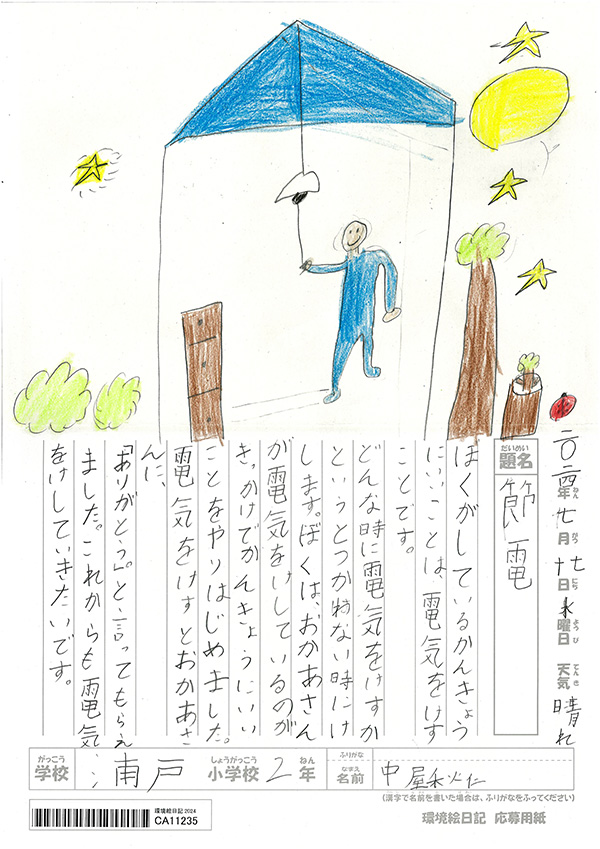 二〇二四年七月十七日水曜日 天気 晴れ
ねん がつ にち ようび てんき
だいめい
題名 節電
ぼくがしているかんきょう
にいいことは、電気をけす
ことです。
どんな時に電気をけすか
というとつかわない時にけ
します。ぼくは、おかあさん
が電気をけしているのが
きっかけでかんきょうにいい
ことをやりはじめました。
電気をけすとおかあさ
んに、
「ありがとう。」と言ってもらえ
ました。これからも電気
をけしていきたいです。
がっこう しょうがっこう ねん ふりがな
学校 戸 小学校 2 年 なまえ 名前 中屋
(漢字で名前を書いた場合は、ふりがなをふってください)
環境絵日記 2024
CA11235
環境絵日記 応募用紙